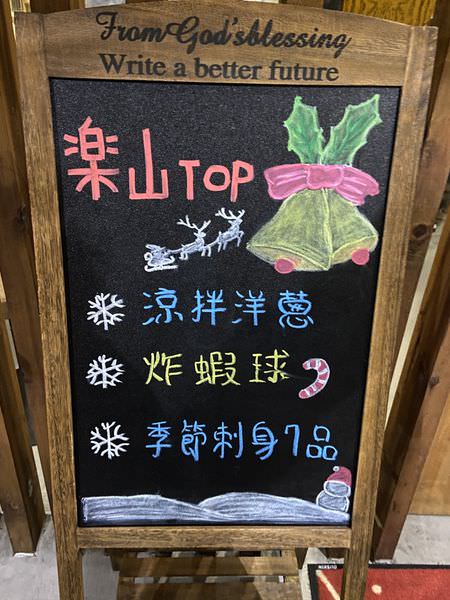 From God's blessing
Write a better future
楽山TOP
涼拌洋蔥
炸蝦球
季節刺身7品